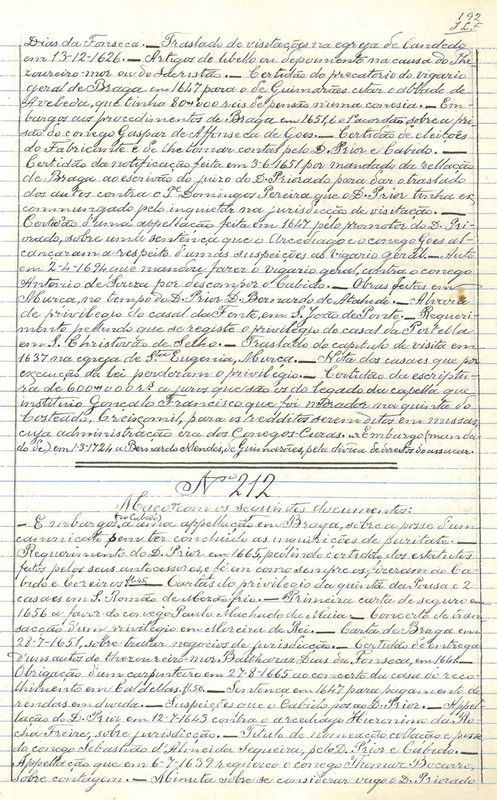 192
Dias da Fonseca. — Traslado de visitações na egreja de Candedo
em 13-12-1626. — Artigos de libello ou depoimento na causa do The-
zoureiro-mor ou do Sacristão. — Certidão do precatorio do vigario
geral de Braga em 1647 para o de Guimarães citar o abbade de
Aveleda, que tinha 80$000 reis de pensão n'uma conesia. — Em-
bargos aos procedimentos de Braga em 1651, e Accordão sobre a pri-
são do conego Gaspar de Affonseca de Goes. — Certidão de eleições
do Fabricante e de lhe tomar contas pelo D. Prior e Cabido. —
Certidão da notificação feita em 3-6-1651 por mandado da rellação
de Braga ao escrivão do juizo do D. Priorado para dar o traslado
dos autos contra Pe Domingos Pereira que o D. Prior tinha ex-
commungado pelo inquietar na jurisdicção de visitação. —
Certidão d'uma appellação feita em 1647 pelo promotor do D. Pri-
orado, sobre uma sentença que o Arcediago e o conego Goes al-
cançaram a respeito d'umas suspeições ao Vigario geral. — Auto
em 2-4-1694 que mandou fazer o vigario geral, contra o conego
Antonio de Souza por descompor o Cabido. — Obras feitas em
Murça, no tempo do D. Prior D. Bernardo de Athaide. — Alvará
de privilegio do casal da Fonte, em S. João de Ponte. — Requeri-
mento pedindo que se registe o privilegio do casal da Portella
em S. Christovão de Selho. — Traslado do capitulo de visita em
1637 na egreja de Sta Eugenia, Murça. — Nota dos casaes que por
execução da lei perderam o privilegio. — Certidão da escriptu-
ra de 600$000 rs a juros que são os do legado da capella que
instituio Gonçalo Francisco que foi morador na quinta do
Costeado, Creixomil, para os redditos serem ditos em missas,
cuja administração era dos Conegos Curas. — Embargo (manda-
do de) em 1-3-1724 a Bernardo Mendes, de Guimarães, pela divida de direitos do assucar.
Nº 212
Maço com os seguintes documentos:
— Embargos (do Cabido) a uma appellação em Braga, sobre a posse d'um
canonicato sem ter concluido as inquirições de puritate. —
Requerimento do D. Prior em 1665, pedindo certidão dos estatutos
feitos pelos seus antecessores, e de como sempre os fizeram ao Ca-
bido e Coreiros. — Cartas do privilegio da quinta da Pousa e 2
casaes em S. Romão de Mesão-frio. — Primeira carta de seguro em
1656 a favor do conego Paulo Machado da Maia. — Concerto de tran-
sacção d'um privilegio em Moreira de Rei. — Carta de Braga em
23-7-1651, sobre tratar negocios de jurisdicção. — Certidão de entrega
d'uns autos do thezoureiro-mor Balthazar Dias da Fonseca, em 1641. —
Obrigação d'um carpinteiro em 27-8-1665 ao concerto da casa do reco-
lhimento em Caldellas. — Sentença em 1647 para pagamento de
rendas em divida. — Suspeições que o Cabido poz ao D. Prior. — Appel-
lação do D. Prior em 12-7-1643 contra o arcediago Hieronimo da Ro-
cha Freire, sobre jurisdicção. — Titulo de nomeação collação e posse
do conego Sebastião d'Almeida Sequeira, pelo D. Prior e Cabido. —
Appellação que em 6-7-1639 requereu o conego Thomaz Bocarro,
sobre contagem. — Minuta sobre se considerar vago o D. Priorado